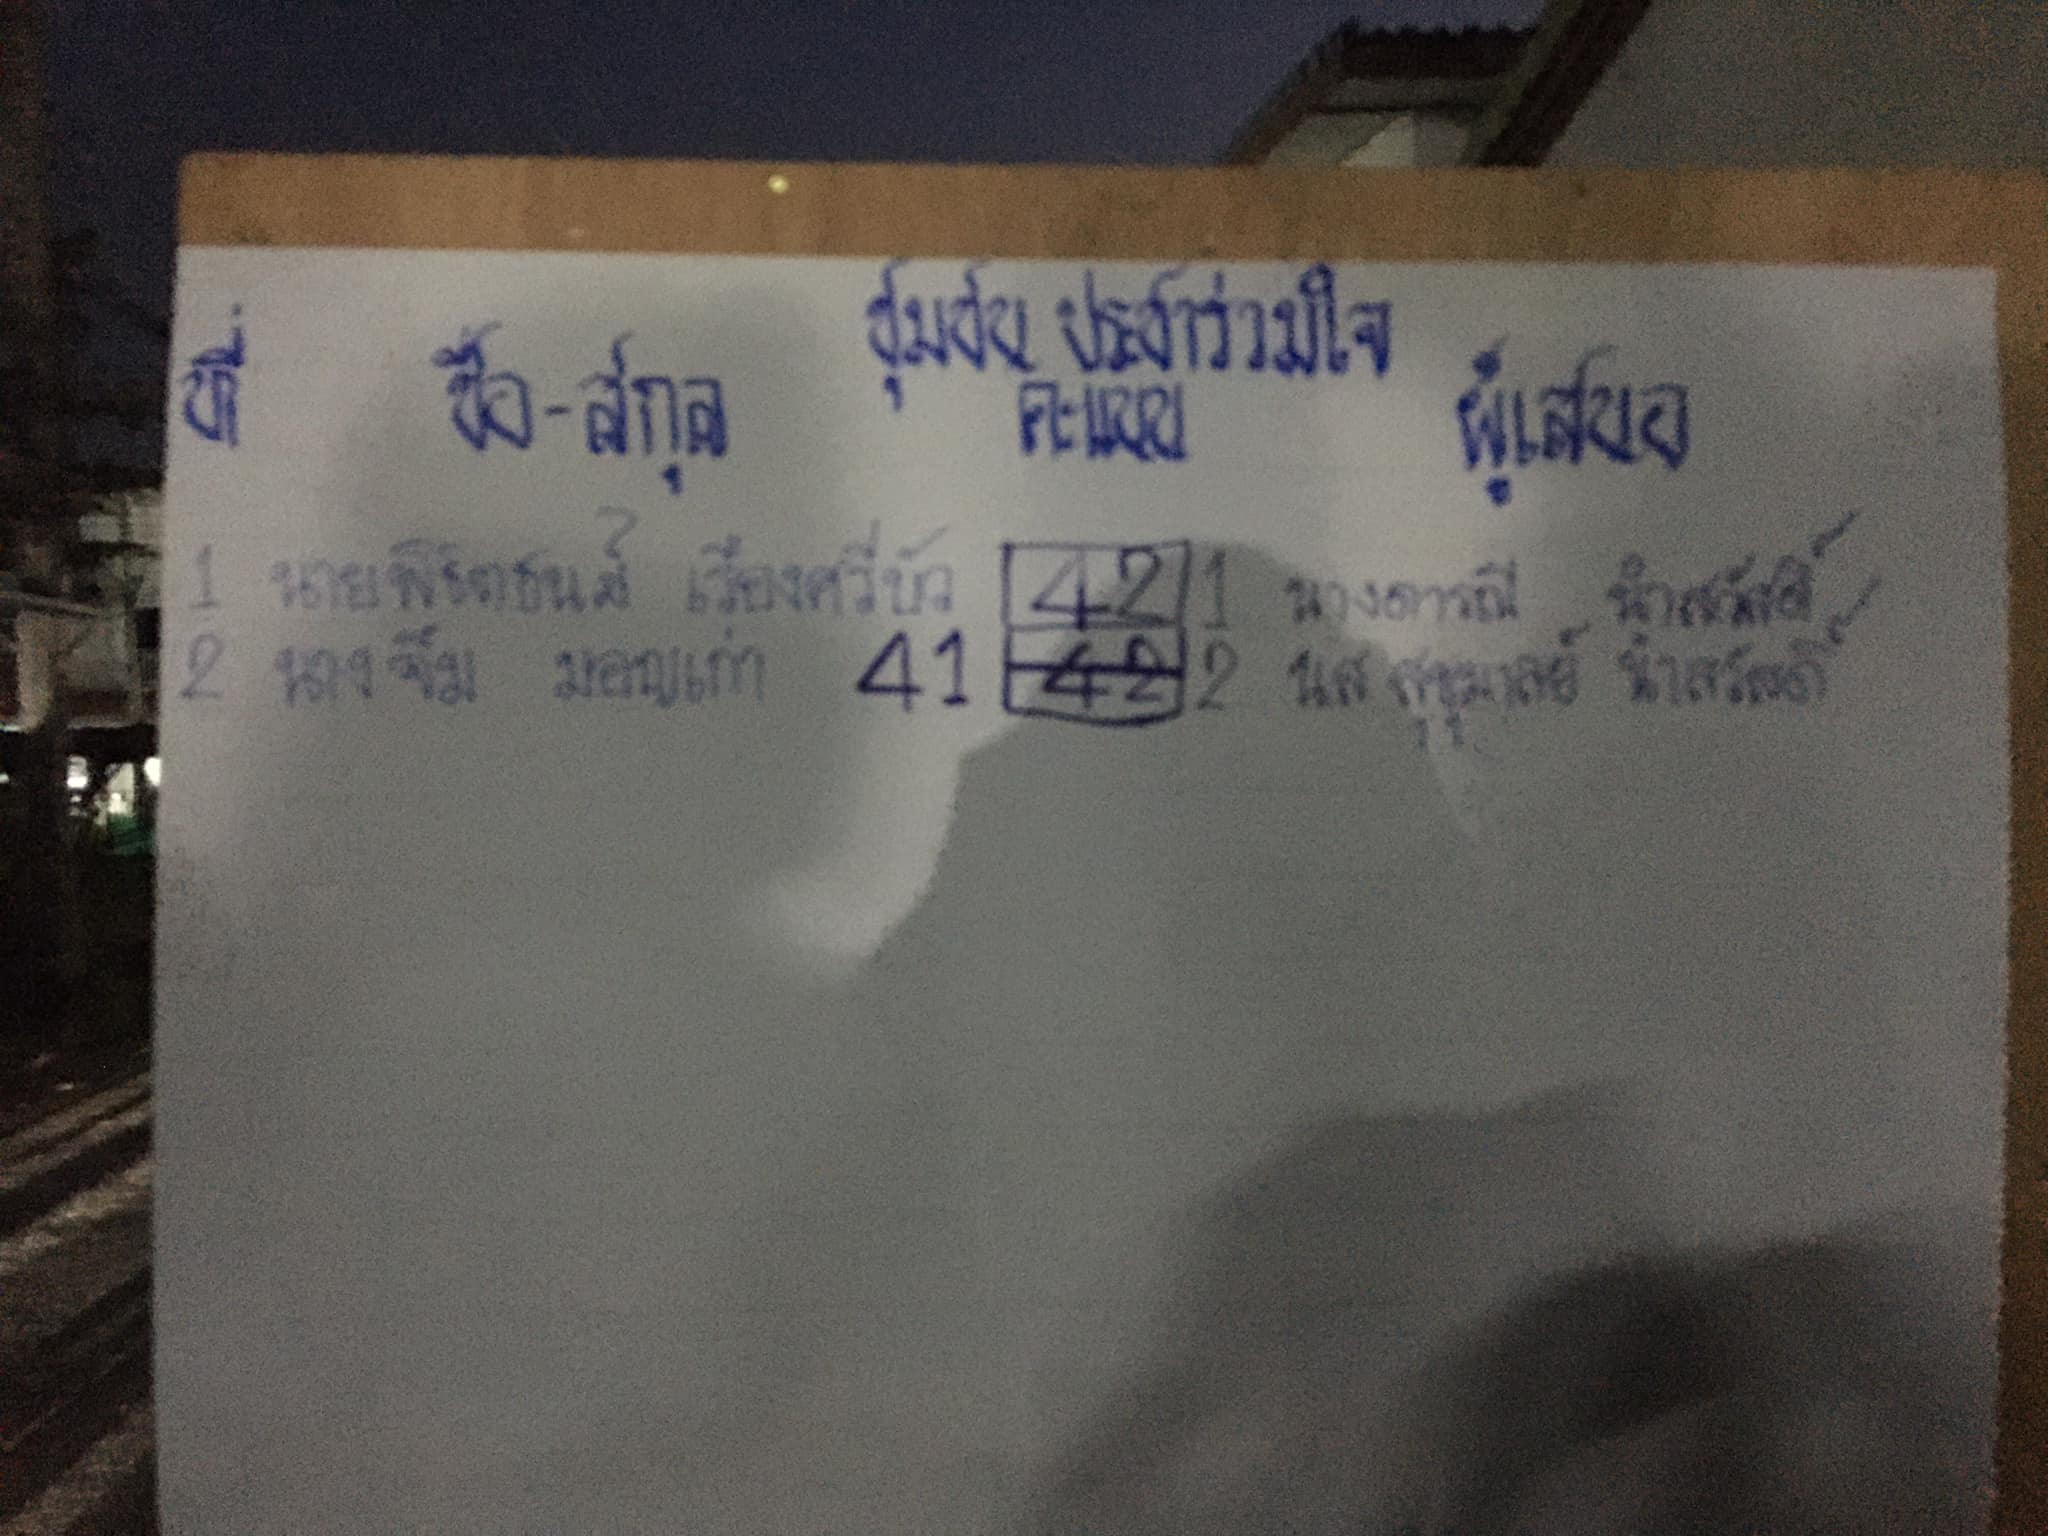 ชุมชน ประชาร่วมใจ
ที่ ชื่อ-สกุล คะแนน ผู้เสนอ
1 นาย เรืองศรีบัว 42 1 นางดารณี นำสวัสดิ์
2 นางจิ๋ม มอญเก่า 41 42 2 นส สุขุมาลย์ นำสวัสดิ์